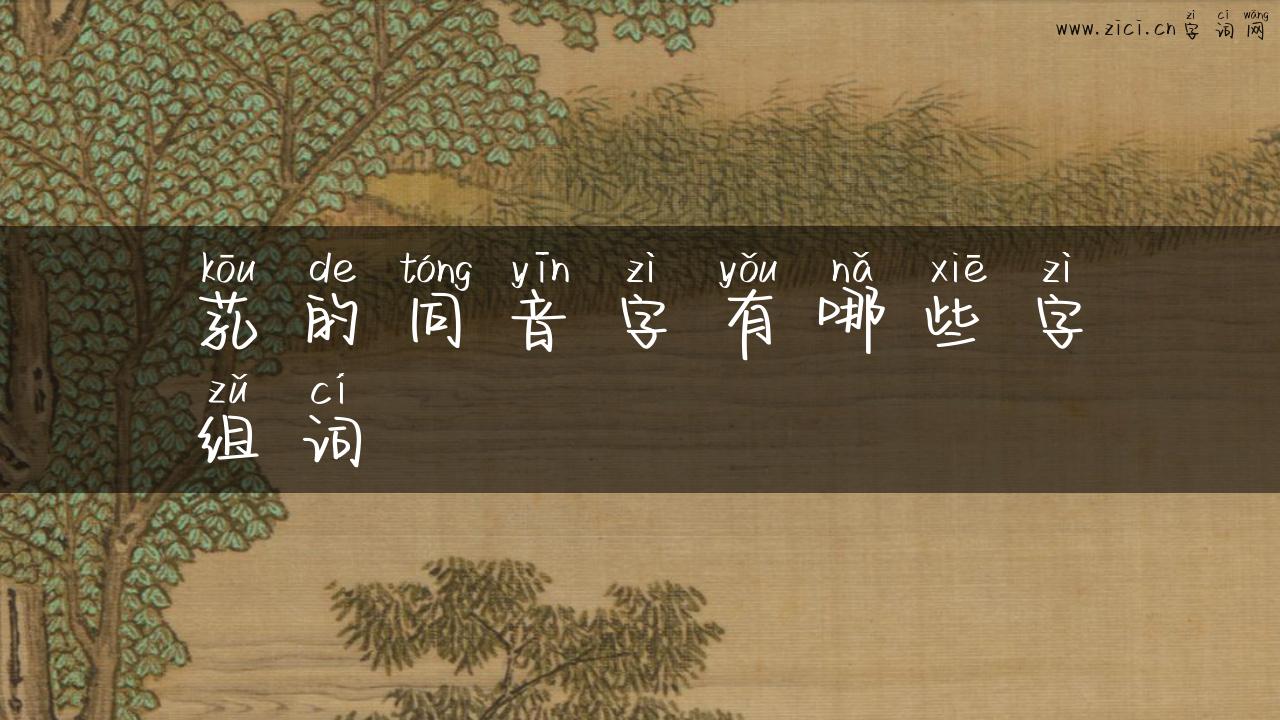 zì cí wǎng
www.zici.cn 字词网
kōu de tóng yīn zì yǒu nǎ xiē zì
芤的同音字有哪些字
zǔ cí
组词